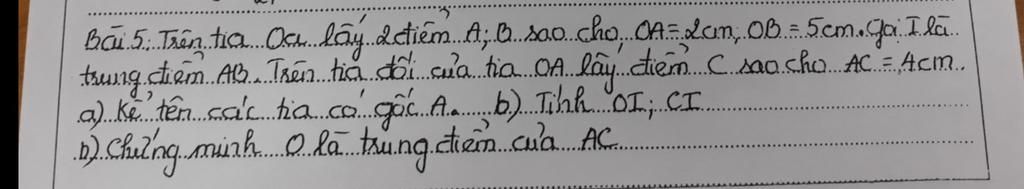 Bài 5: Trên tia Oa lấy 2 điểm A; B sao cho OA = 2cm, OB = 5cm. Gọi I là
trung điểm AB. Trên tia đối của tia OA lấy điểm C sao cho AC = 4cm.
a) Kể tên các tia có gốc A. b) Tính OI; CI
b) Chứng minh O là trung điểm của AC